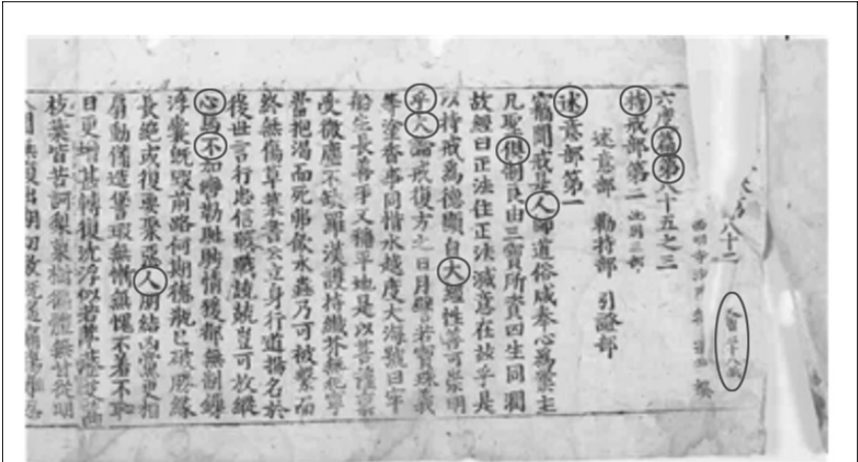 八十二
六度篇第八十五之三
持戒部第二 此別三部
述意部 勸持部 引證部
述意部第一
竊聞戒是人師道俗咸奉心為業主
凡聖俱制良由三寶所資四生同潤
故經曰正法住正法滅意在茲乎是
以持戒為德顯自大經性善可崇明
乎大論戒復方之日月譬若寶珠義
等塗香事同惜水越度大海號曰牢
船生長善牙又稱平地是以菩薩稟
受微塵不缺羅漢護持纖芥無犯寧
當抱渴而死弗飲水蟲乃可被繫而
終無傷草葉書云立身行道揚名於
後世言行忠信戰戰兢兢豈可放縱
心馬不加轡勒馳騁情猴都無制鎖
浮囊既毀前路何期德瓶已破勝緣
長絕或復要聚惡人朋結凶黨更相
扇動備造諸瑕無慚無愧不羞不恥
日更增甚轉復沈浮似若葶藶艾莖
枝葉皆苦訶梨果樹遍體無甘從明
入闇無復出期